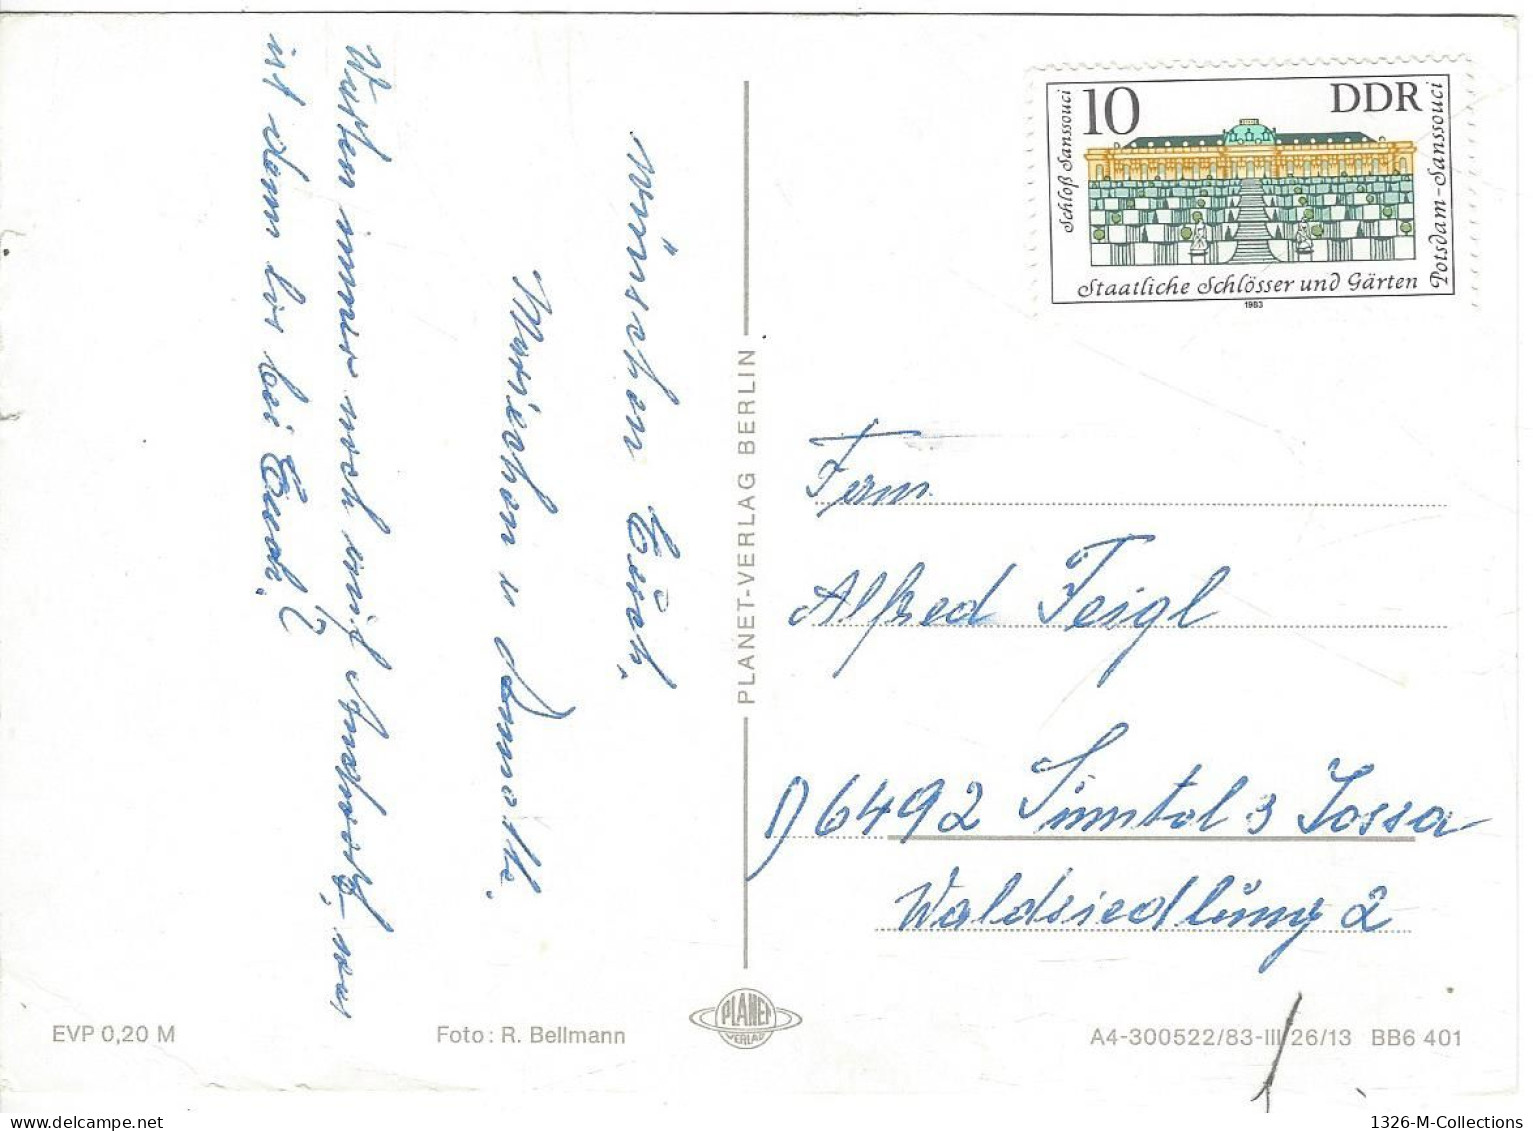 wünschen Euch
Mariechen u
Warten immer noch auf Antwort, was
ist denn los bei Euch?
PLANET-VERLAG BERLIN
10
DDR
Schloß Sanssouci
Potsdam-Sanssouci
Staatliche Schlösser und Gärten
1983
Fam.
Alfred Feigl
D 6492 Sinntal 3 Jossa
Waldsiedlung 2
EVP 0,20 M
Foto: R. Bellmann
PLANET
VERLAG
A4-300522/83-III/26/13 BB6 401
1326-M-Collections